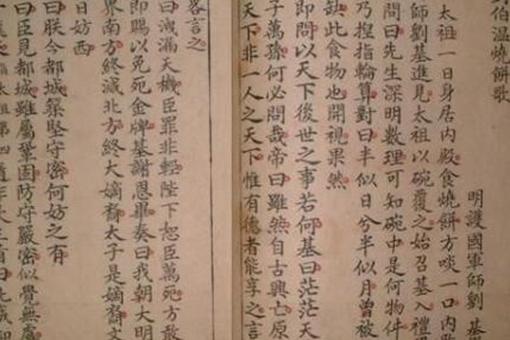 伯温燒餅歌
明護國軍師劉基
太祖一日身居內殿食燒餅方啖一口內
師劉基進見太祖以碗覆之始召基入禮
問曰先生深明數理可知碗中是何物件
乃揑指輪算對曰半似日兮半似月曾被
缺此食物也開視果然
即問以天下後世之事若何基曰茫茫天
子萬孫何必問哉帝曰雖然自古興亡原
天下非一人之天下惟有德者能享之言
畧言之
曰洩漏天機臣罪非輕陛下恕臣萬死方敢
即賜以免死金牌基謝恩畢奏曰我朝大明
界南方終滅北方終大嫡裔太子是嫡裔文
日妨西
曰朕今都城築堅守密何妨之有
曰臣見都城雖屬鞏固防守嚴密似覺無